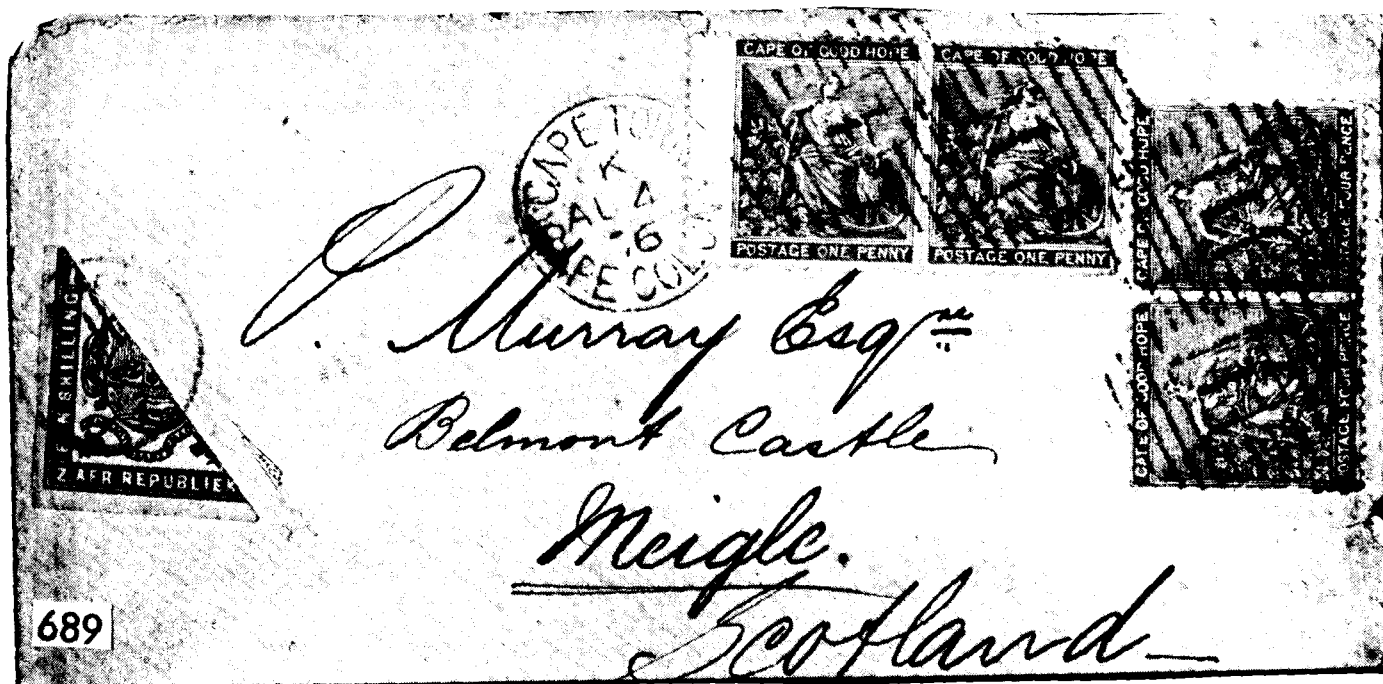 CAPE OF GOOD HOPE
CAPE OF GOOD HOPE
POSTAGE ONE PENNY
POSTAGE ONE PENNY
CAPE OF GOOD HOPE
POSTAGE FOUR PENCE
CAPE OF GOOD HOPE
POSTAGE FOUR PENCE
CAPE TOWN
K
AU 4
6
CAPE COLONY
EEN SHILLING
Z. AFR REPUBLIEK
P. Murray Esqre
Belmont Castle
Meigle.
Scotland
689